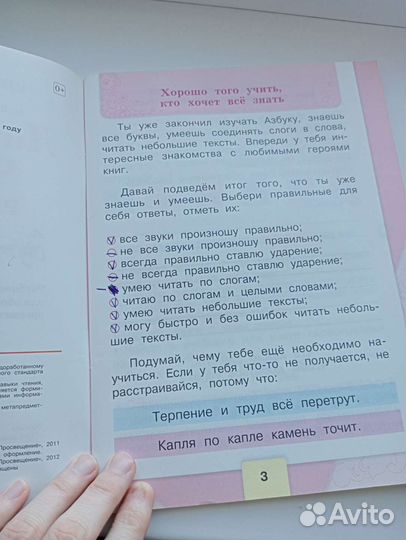 0+
году
доработанному
ного стандарта
навыки чтения,
яется форми-
вами информа-
метапредмет-
Просвещение», 2011
оформление.
Просвещение», 2012
ищены
Хорошо того учить,
кто хочет всё знать
Ты уже закончил изучать Азбуку, знаешь
все буквы, умеешь соединять слоги в слова,
читать небольшие тексты. Впереди у тебя ин-
тересные знакомства с любимыми героями
книг.
Давай подведём итог того, что ты уже
знаешь и умеешь. Выбери правильные для
себя ответы, отметь их:
все звуки произношу правильно;
не все звуки произношу правильно;
всегда правильно ставлю ударение;
не всегда правильно ставлю ударение;
умею читать по слогам;
читаю по слогам и целыми словами;
умею читать небольшие тексты;
могу быстро и без ошибок читать неболь-
шие тексты.
Подумай, чему тебе ещё необходимо на-
учиться. Если у тебя что-то не получается, не
расстраивайся, потому что:
Терпение и труд всё перетрут.
Капля по капле камень точит.
3
Avito